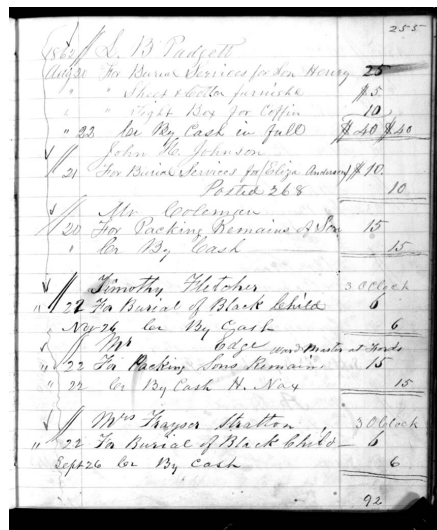 255
1862 // L. B Padgett
Aug 20 For Burial Services for Son Henry 25
" " Sheet & Cotton furnishd $5.
" " Tight Box for Coffin 10
" 22 Cr By Cash in full $40 $40
// John H. Johnson
21 For Burial Services for (Eliza Anderson) $10.
Posted 268 10
// Mr Colemyer
20 For Packing Remains of Son 15
" Cr By Cash 15
// Timothy Fletcher 3 OClock
" 22 For Burial of Black Child 6
26 Cr By Cash 6
// Mr Edge Ward Master at Fords
" 22 For Packing Sons Remains 15
" 22 Cr By Cash H. Nax 15
// Mrs Frayser Stratton 3 OClock
" 22 For Burial of Black Child 6
Sept 26 Cr By Cash 6
92